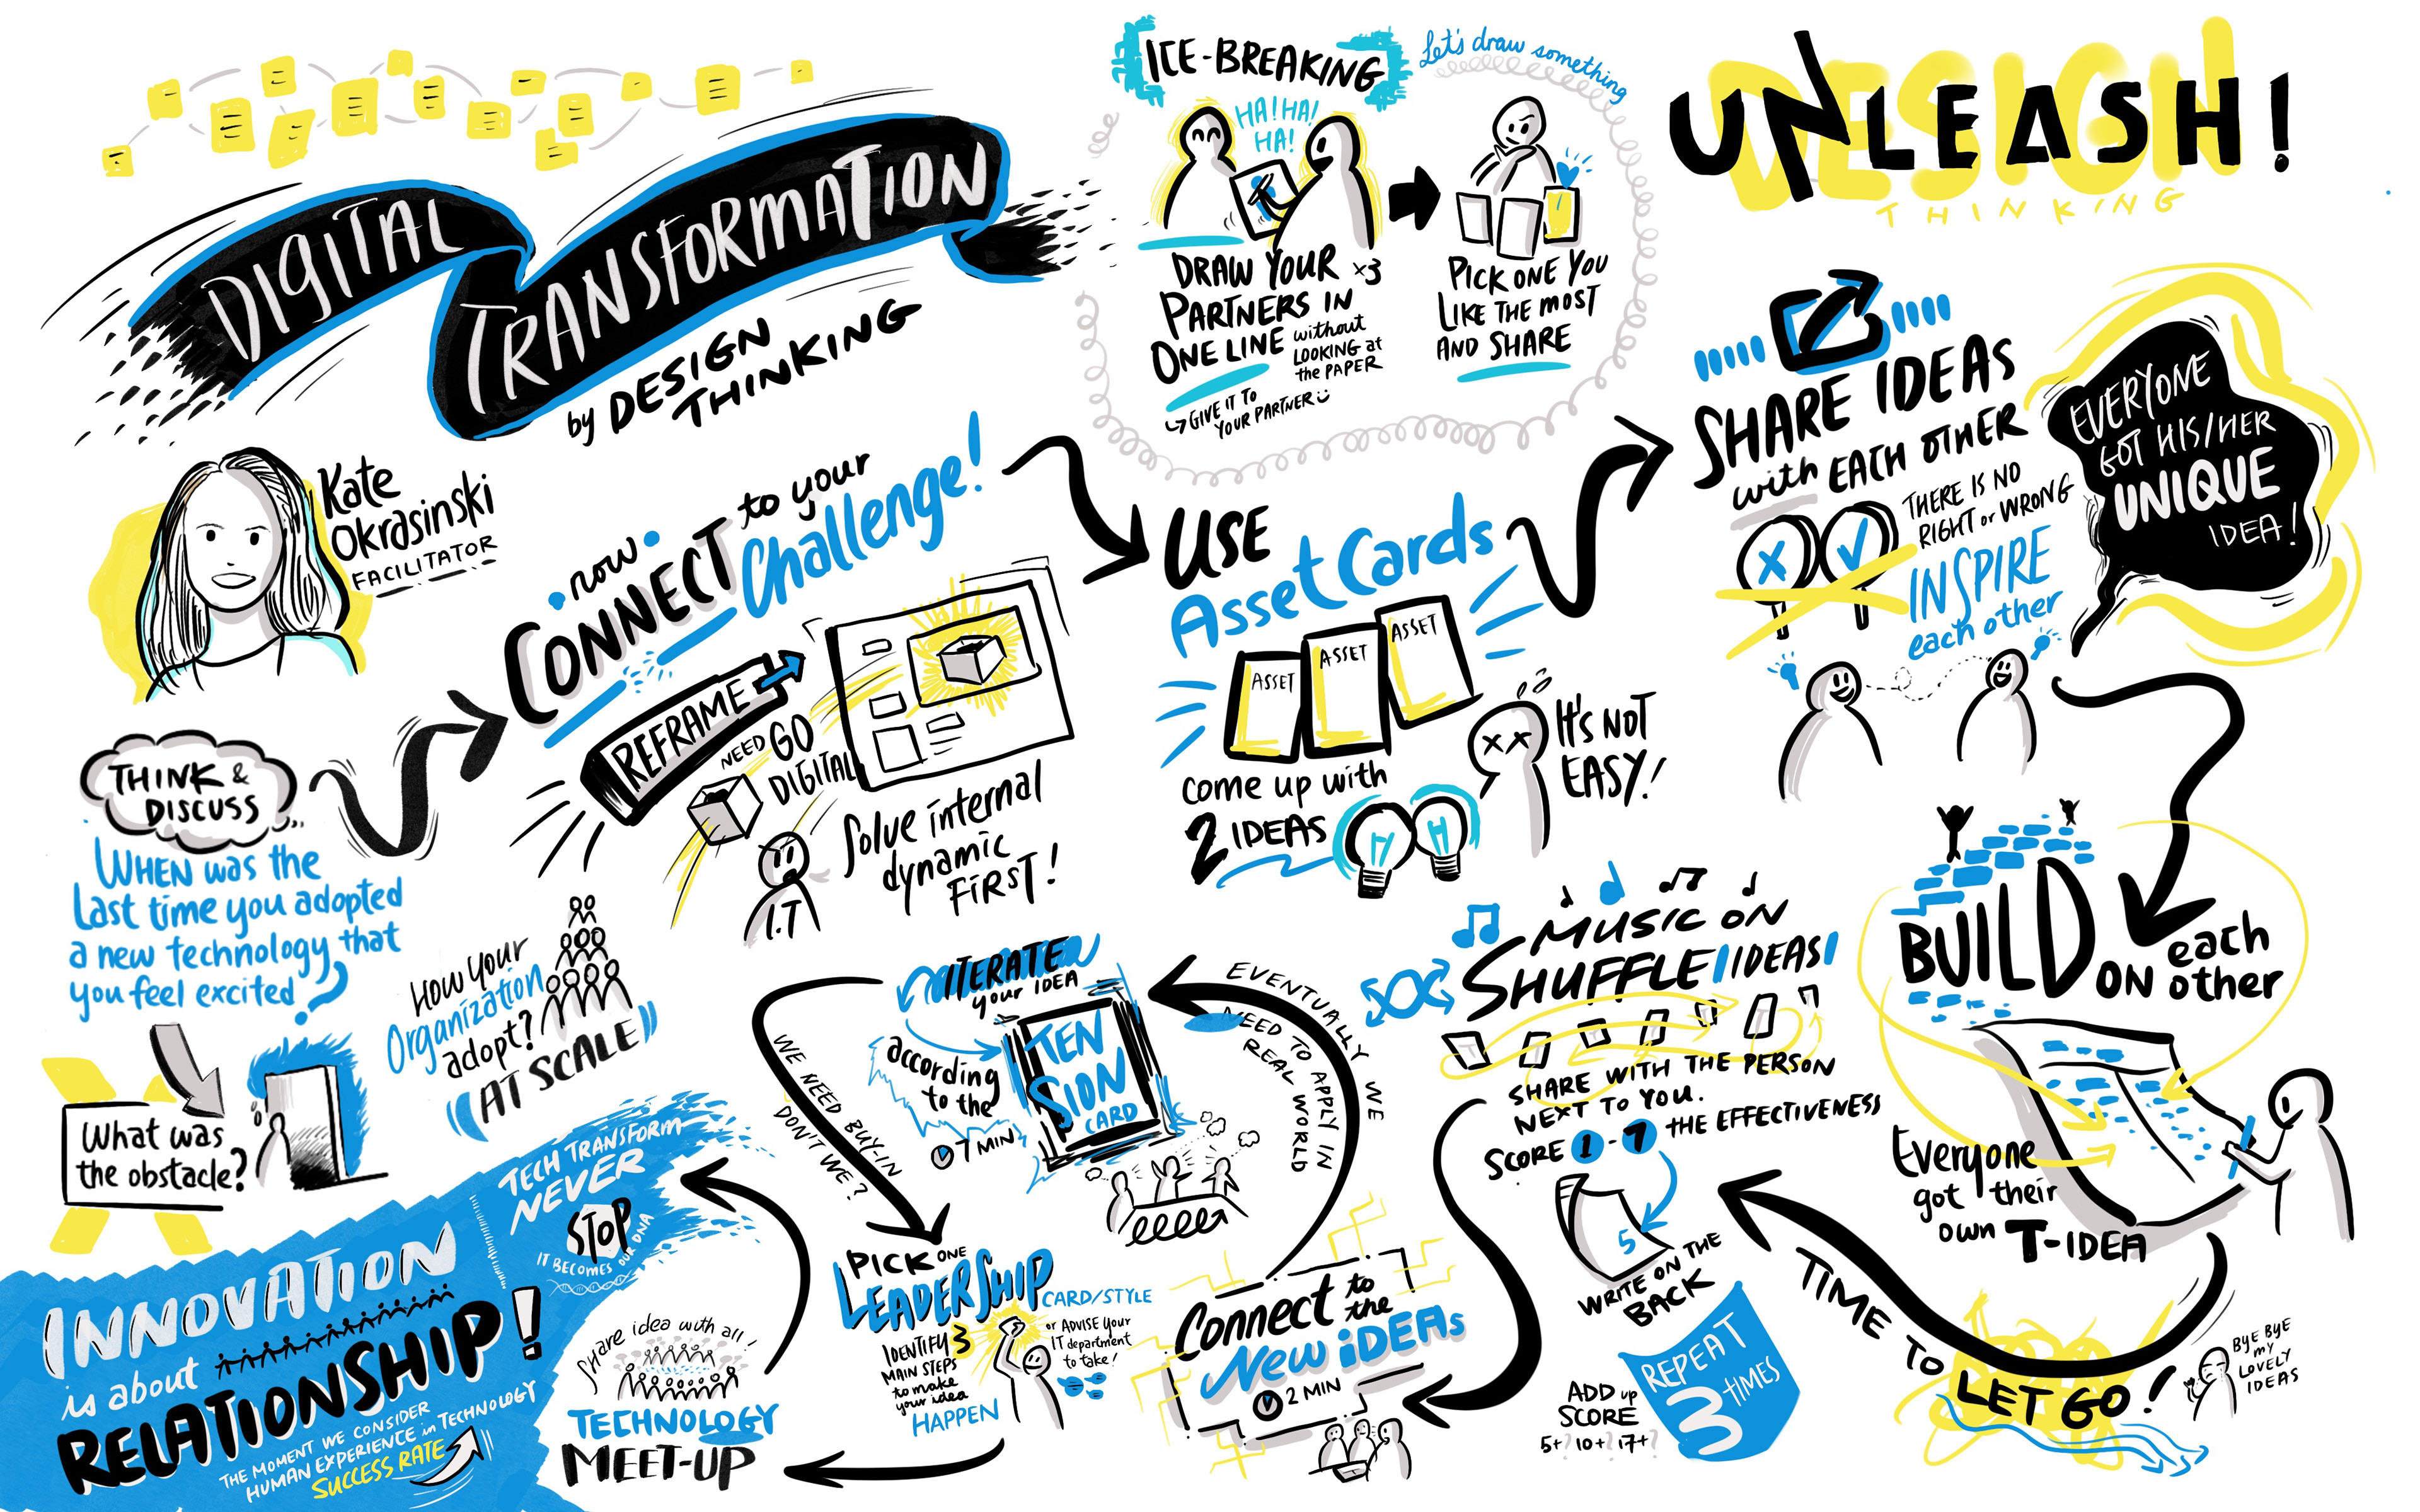 DIGITAL
TRANSFORMATION
by DESIGN
THINKING
Kate
Okrasinski
FACILITATOR
ICE-BREAKING
Let's draw something
HA! HA!
HA!
DRAW YOUR x3
PARTNERS IN
ONE LINE without
LOOKING at
the PAPER
GIVE IT TO
YOUR PARTNER
PICK ONE YOU
LIKE THE MOST
AND SHARE
UNLEASH!
DESIGN
THINKING
THINK &
DISCUSS...
WHEN was the
Last time you adopted
a new technology that
you feel excited?
What was
the obstacle?
HOW YOUR
Organization
adopt?
AT SCALE
now
CONNECT to your
Challenge!
REFRAME
NEED GO
DIGITAL
I.T
Solve internal
dynamic
FIRST!
USE
Asset Cards
ASSET
ASSET
ASSET
come up with
2 IDEAS
IT'S NOT
EASY!
SHARE IDEAS
with EACH OTHER
THERE IS NO
RIGHT or WRONG
X
INSPIRE
each other
EVERYONE
GOT HIS/HER
UNIQUE
IDEA!
BUILD
ON each
other
Everyone
got their
own T-IDEA
TIME TO
LET GO!
BYE BYE
my
LOVELY
IDEAS
MUSIC ON
SHUFFLE IDEAS
SHARE WITH THE PERSON
NEXT TO YOU.
SCORE 1 - 7 THE EFFECTIVENESS
5
WRITE ON THE
BACK
REPEAT
3 TIMES
ADD up
SCORE
5+? 10+? 17+?
Connect to
the
New iDEAs
2 MIN
EVENTUALLY WE
NEED TO APPLY IN
REAL WORLD
ITERATE
your IDEA
according
to the
TEN
SION
CARD
7 MIN
WE NEED BUY-IN
DON'T WE?
PICK ONE
LEADERSHIP
CARD/STYLE
IDENTIFY 3
MAIN STEPS
to make
your idea
HAPPEN
or ADVISE your
IT department
to take!
Share idea with all!
TECHNOLOGY
MEET-UP
TECH TRANSFORM
NEVER
STOP
IT BECOMES OUR DNA
INNOVATION
is about
RELATIONSHIP!
THE MOMENT WE CONSIDER
HUMAN EXPERIENCE in TECHNOLOGY
SUCCESS RATE